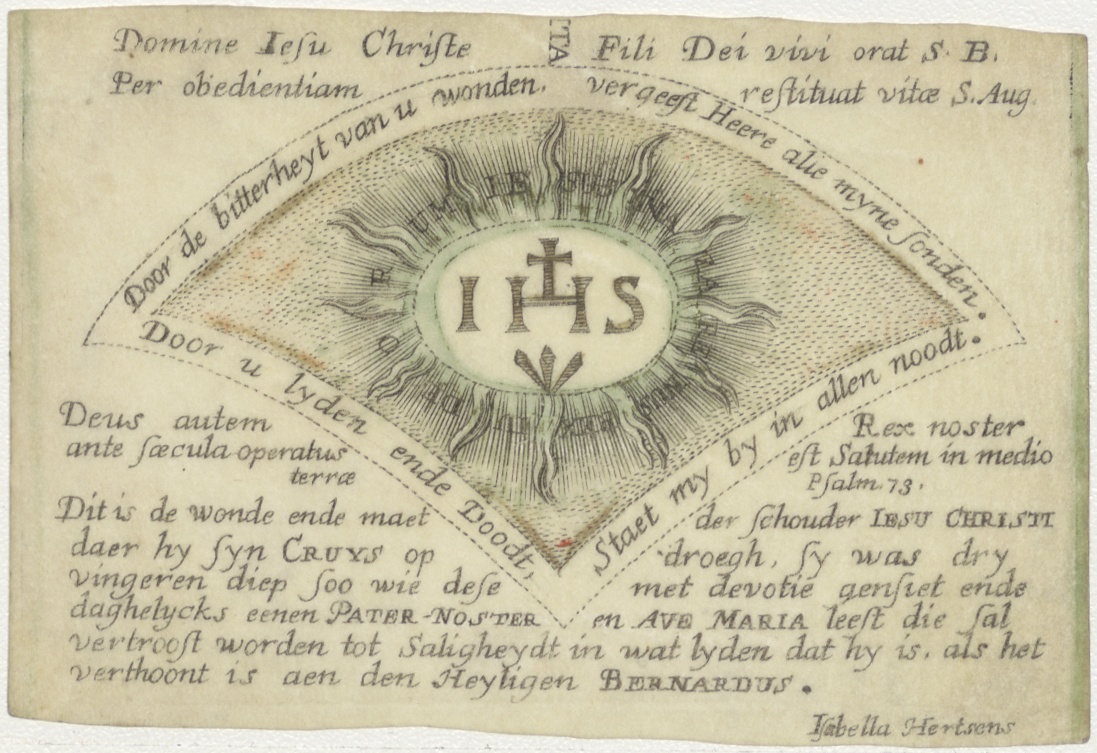 Domine Iesu Christe ITA Fili Dei vivi orat S. B.
Per obedientiam restituat vitæ S. Aug.
Door de bitterheyt van u wonden. vergeeft Heere alle myne sonden.
IESUS NAZARENUS REX IUDEORUM
IHS
Door u lyden ende Doodt,
Staet my by in allen noodt.
Deus autem
ante sæcula operatus
terræ
Rex noster
est Salutem in medio
Psalm. 73.
Dit is de wonde ende maet der schouder IESU CHRISTI
daer hy syn CRUYS op droegh, sy was dry
vingeren diep soo wie dese met devotie aensiet ende
daghelycks eenen PATER-NOSTER en AVE MARIA leest die sal
vertroost worden tot Saligheydt in wat lyden dat hy is, als het
verthoont is aen den Heyligen BERNARDUS.
Isabella Hertsens